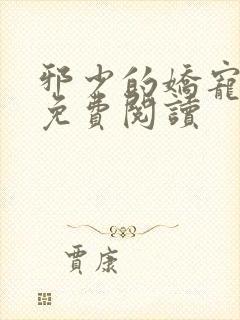 邪少的嬌寵
免費閱讀
賈康